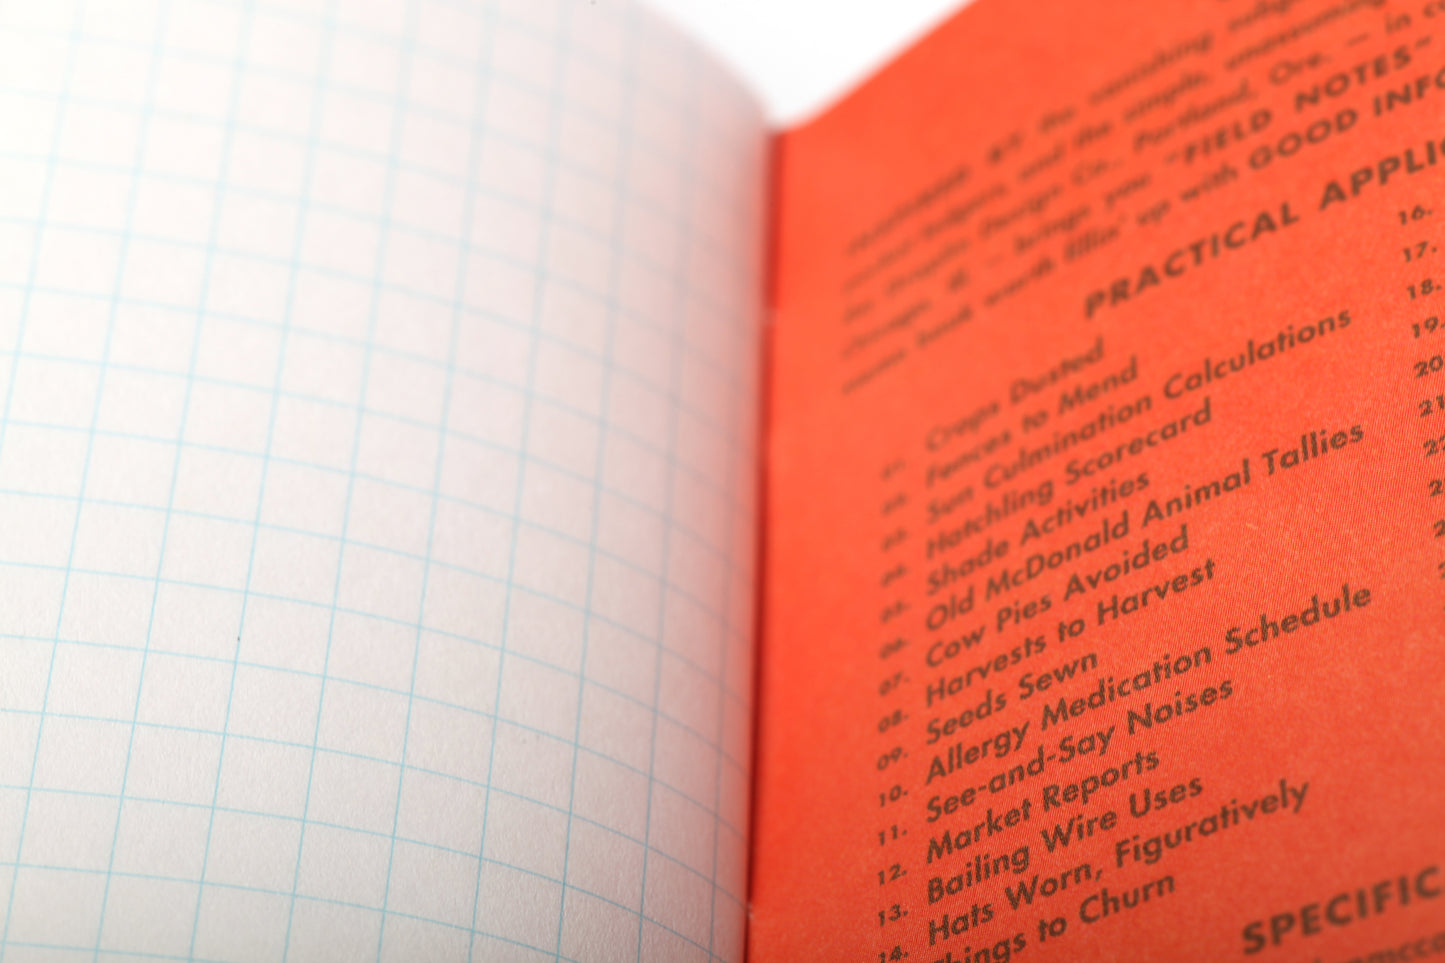 BY the vanishing
and the simple, unassuming
Design Co., Portland, Ore. — in
— brings you "FIELD NOTES"
book worth fillin' up with GOOD INFO
PRACTICAL APPLI
01. Crops Dusted
02. Fences to Mend
03. Sun Culmination Calculations
04. Hatchling Scorecard
05. Shade Activities
06. Old McDonald Animal Tallies
07. Cow Pies Avoided
08. Harvests to Harvest
09. Seeds Sewn
10. Allergy Medication Schedule
11. See-and-Say Noises
12. Market Reports
13. Bailing Wire Uses
14. Hats Worn, Figuratively
Things to Churn
16.
17.
18.
19.
20
21
SPECIFIC